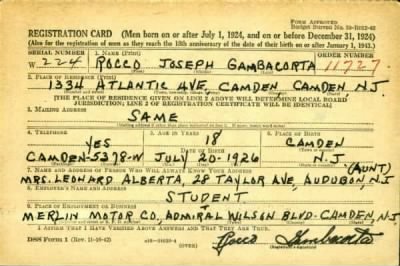 Form Approved
Budget Bureau No. 33-R122-42
REGISTRATION CARD (Men born on or after July 1, 1924, and on or before December 31, 1924)
(Also for the registration of men as they reach the 18th anniversary of the date of their birth on or after January 1, 1943.)
SERIAL NUMBER 1. NAME (Print) ORDER NUMBER
W 224 ROCCO JOSEPH GAMBACORTA 11727
(First) (Middle) (Last)
2. PLACE OF RESIDENCE (Print)
1334 ATLANTIC AVE, CAMDEN CAMDEN N.J.
[THE PLACE OF RESIDENCE GIVEN ON LINE 2 ABOVE WILL DETERMINE LOCAL BOARD
JURISDICTION; LINE 2 OF REGISTRATION CERTIFICATE WILL BE IDENTICAL]
3. MAILING ADDRESS
SAME
4. TELEPHONE 5. AGE IN YEARS 6. PLACE OF BIRTH
YES 18 CAMDEN
DATE OF BIRTH
CAMDEN-5378-W JULY 20-1926 N.J
7. NAME AND ADDRESS OF PERSON WHO WILL ALWAYS KNOW YOUR ADDRESS (AUNT)
MRS. LEONARD ALBERTA, 28 TAYLOR AVE, AUDUBON N.J
8. EMPLOYER'S NAME AND ADDRESS
STUDENT
9. PLACE OF EMPLOYMENT OR BUSINESS
MERLIN MOTOR CO, ADMIRAL WILSON BLVD- CAMDEN, N.J
I AFFIRM THAT I HAVE VERIFIED ABOVE ANSWERS AND THAT THEY ARE TRUE.
DSS Form 1 (Rev. 11-16-42) (OVER) Rocco Gambacorta